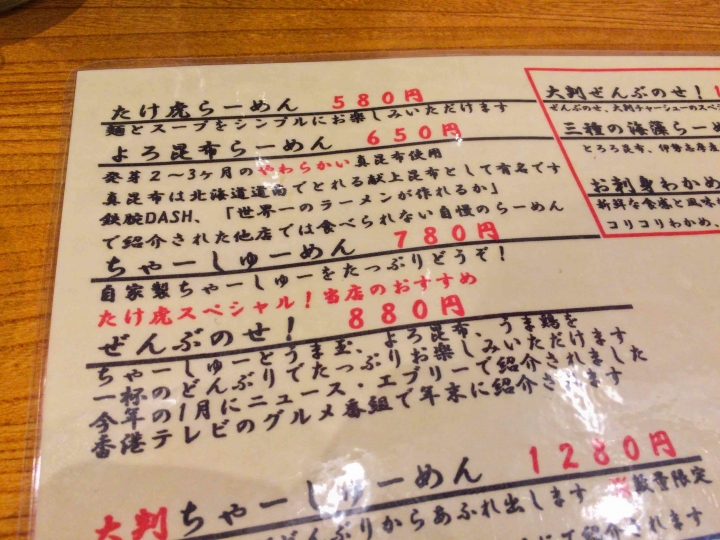 たけ虎らーめん 580円
麺とスープをシンプルにお楽しみいただけます
よろ昆布らーめん 650円
発芽2〜3ヶ月のやわらかい真昆布使用
真昆布は北海道道南でとれる献上昆布として有名です
鉄腕DASH、「世界一のラーメンが作れるか」
で紹介された他店では食べられない自慢のらーめん
ちゃーしゅーめん 780円
自家製ちゃーしゅーをたっぷりどうぞ!
たけ虎スペシャル!当店のおすすめ
ぜんぶのせ! 880円
ちゃーしゅーとうま玉、よろ昆布、うま鶏を
一杯のどんぶりでたっぷりお楽しみいただけます
今年の1月にニュース・エブリーで紹介されました
香港テレビのグルメ番組で年末に紹介されます
大判ちゃーしゅーめん 1280円
どんぶりからあふれ出します ※数量限定
で紹介されます
大判ぜんぶのせ!
ぜんぶのせ、大判チャーシューのスペ
三種の海藻らーめ
とろろ昆布、伊勢志摩産
お刺身わかめ
新鮮な食感と風味
コリコリわかめ、